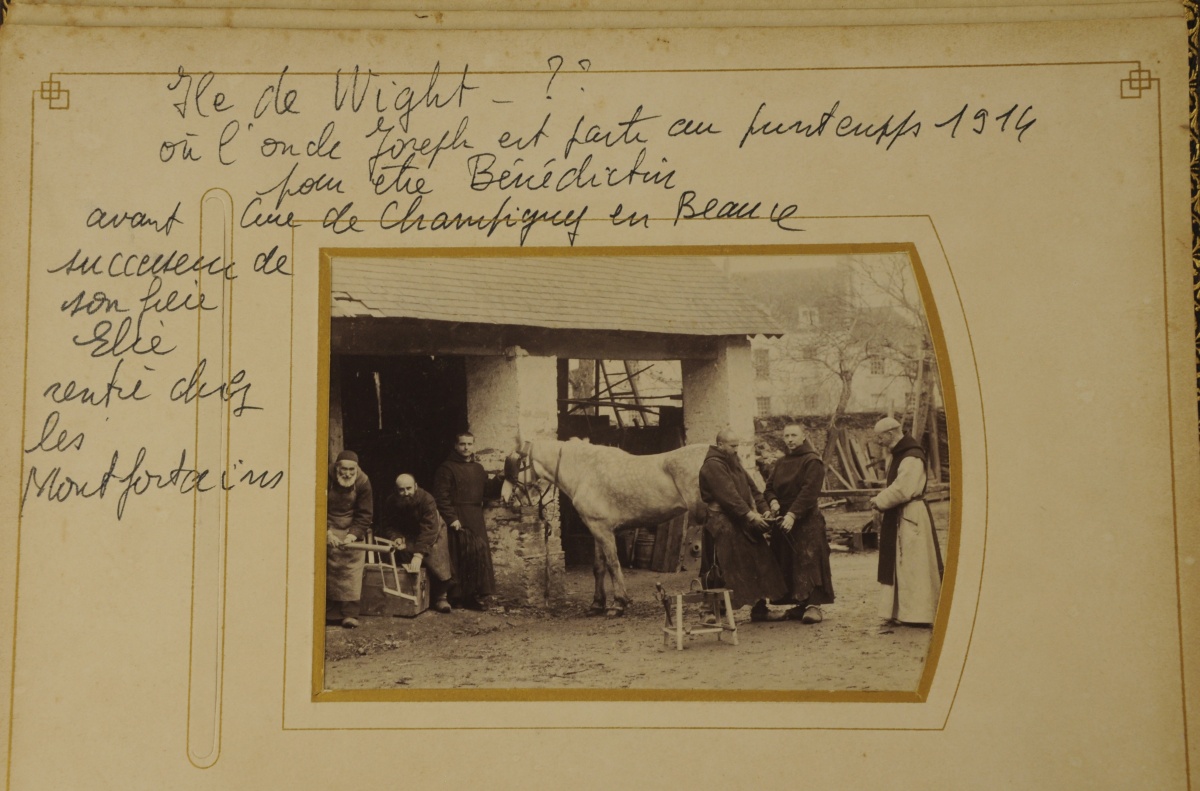 Ile de Wight - ??
où l'oncle Joseph est parti au printemps 1914
pour être Bénédictin
avant Curé de Champigny en Beauce
successeur de
son frère
Elie
rentré chez
les
Montfortains